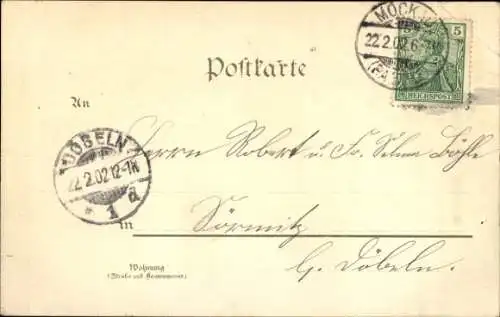 MOCK
22.2.02.6-7
5
REICHSPOST
Postkarte
An
DÖBELN
22.2.02.12-1N
* 1 d
Herrn Robert u. Fr. Selma Böhle
in
Sörmitz
b. Döbeln.
Wohnung
(Straße und Hausnummer)